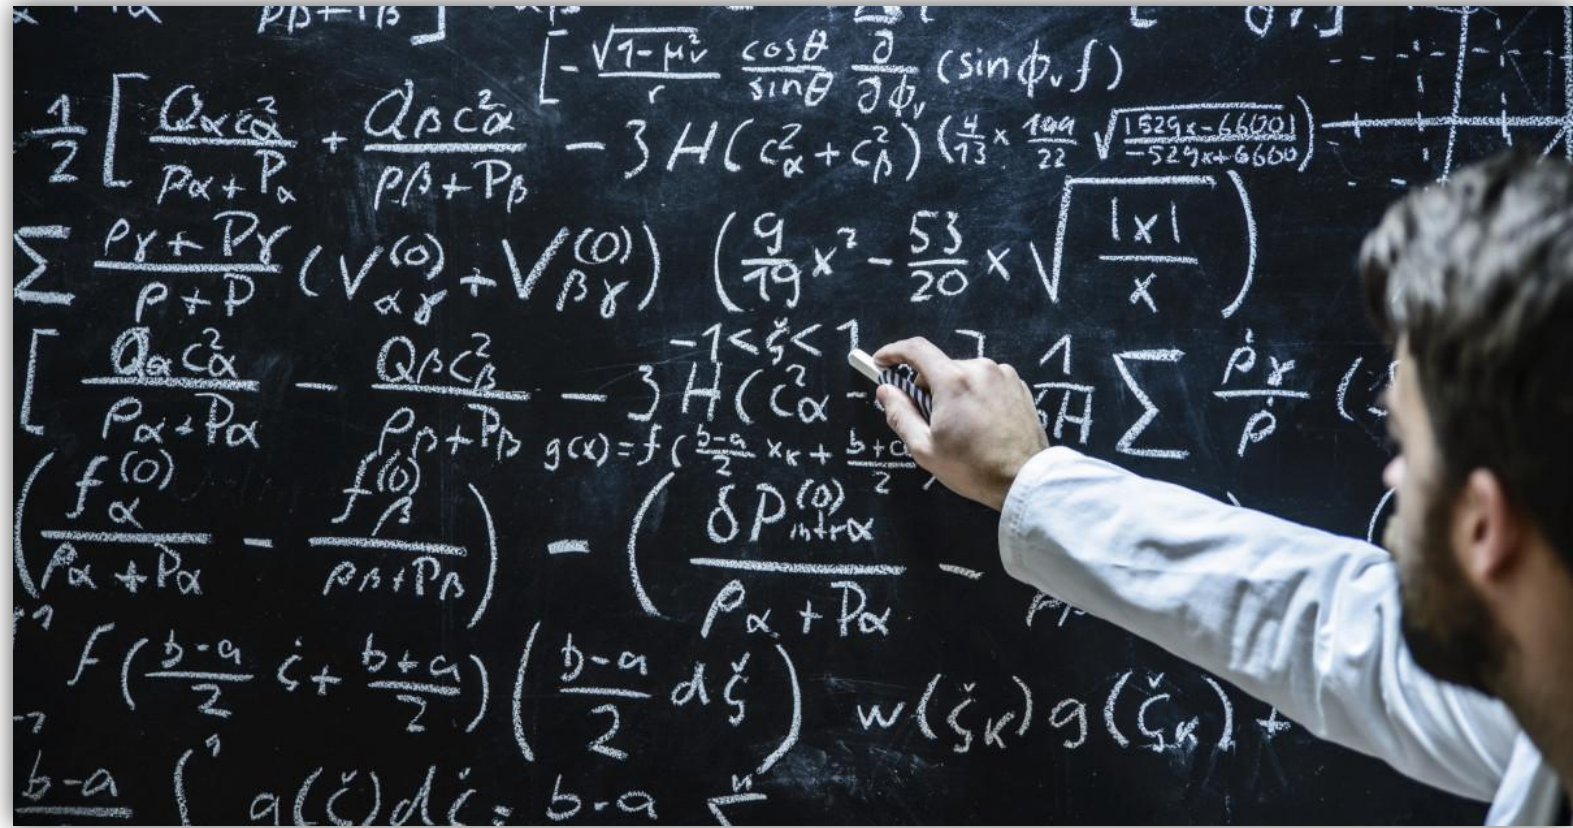 [- √(1-μ²ᵥ)/r cosθ/sinθ ∂/∂ϕᵥ (sin ϕᵥ f)
1/2 [ Qαc²α/ρα+Pα + Qβc²α/ρβ+Pβ - 3H(c²α+c²β) (4/13 x 199/22 √(|529x-6600|/-529x+6600))
∑ ργ+Pγ/ρ+P (V(0)αγ+V(0)βγ) (9/19 x² - 53/20 x √(|x|/x))
-1<ξ<1
[ Qαc²α/ρα+Pα - Qβc²β/ρβ+Pβ - 3H(c²α - 1/6H ∑ ṗγ/ρ̇ (
g(x)=f(b-a/2 xκ + b+a/2
(f(0)α/ρα+Pα - f(0)β/ρβ+Pβ) - (δP(0)intrα/ρα+Pα -
f(b-a/2 ξ+ b+a/2)(b-a/2 dξ) w(ξκ)g(ξκ)+
b-a g(ξ)dξ= b-a ∑